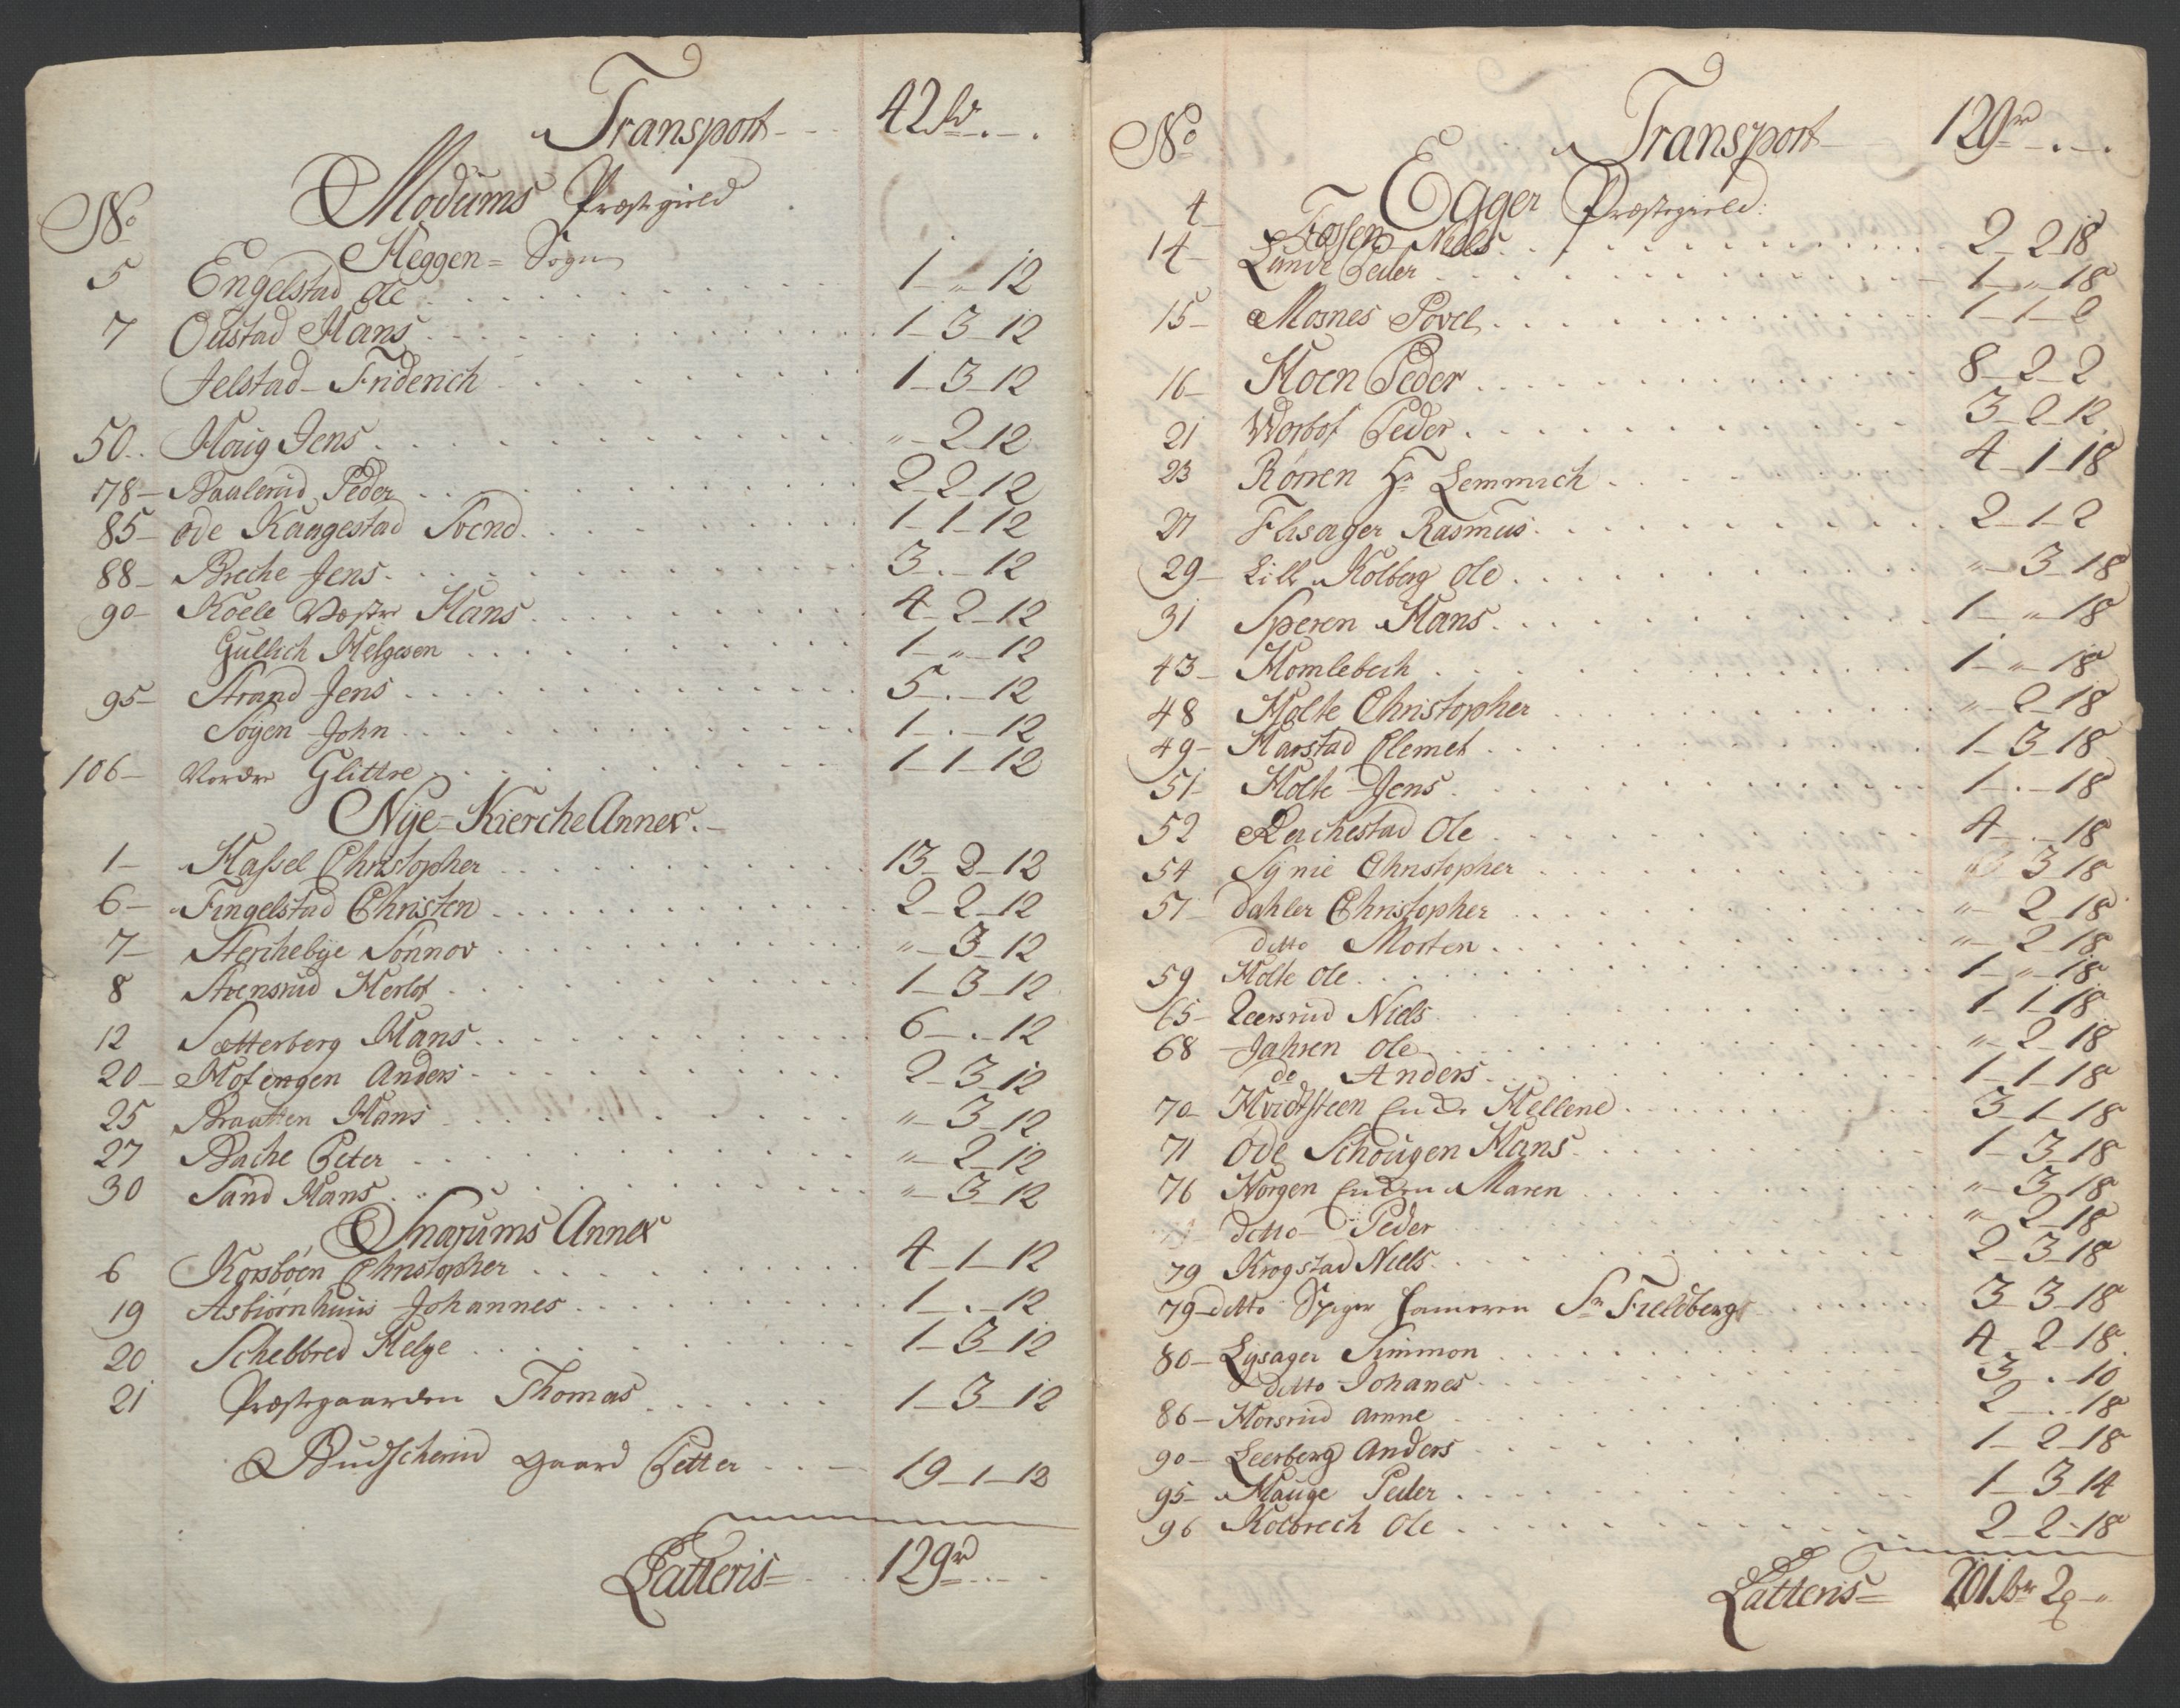 Transport - - 42 rd . - .
Modums Præstegield
No
Heggen = Sogn
5 Engelstad Ole 1 - „ - 12
7 Oustad Hans 1 - 3 - 12
Jelstad - Friderich 1 - 3 - 12
50 . Houg Jens „ - 2 - 12
78 - Baalerud Peder 2 - 2 - 12
85 - Øde Kaagestad Svend 1 - 1 - 12
88 - Breche Jens 3 - . - 12
90 - Koele Væstre Hans 4 - 2 - 12
Gullich Helgesen 1 - „ - 12
95 - Strand Jens 5 - . - 12
Søgen John 1 - . - 12
106 - Nordre Glittre 1 - 1 - 12
Nye = Kierche Annex . -
1 - Hassel Christopher 13 - 2 - 12
6 - Fingelstad Christen 2 - 2 - 12
7 - Sterchebye Sønnov „ - 3 - 12
8 Stvensrud Herlof 1 - 3 - 12
12 Sætterberg Hans 6 - . - 12
20 - Hofengen Anders 2 - 3 - 12
25 Braatten Hans „ - 3 - 12
27 Bache Peter „ - 2 - 12
30 Sand Hans „ - 3 - 12
Snarums Annex
6 Korsbøen Christopher 4 - 1 - 12
19 Asbiørnhuus Johannes 1 - . - 12
20 Schebbred Helge 1 - 3 - 12
21 Præstegaarden Thomas 1 - 3 - 12
Budscherud Gaard Petter 19 - 1 - 12
Latteris = 129 rd
No Transport 129 rd . - .
Eger Præstegield
4 Fossen Niels 2 - 2 18
14 - Lunde Peder 1 - „ - 18
15 - Mosnes Povel 1 - 1 - 2
16 - Moen Peder 8 - 2 - 2
21 Worbof Peder 3 - 2 - 12
23 Rørren Hr Lemmich 4 - 1 - 18
27 Flisager Rasmus 2 - 1 - 2
29 - Lille Kolberg Ole „ - 3 - 18
31 Speren Hans 1 - „ - 18
43 - Homlebech 1 - „ - 18
48 Holte Christopher „ - 2 - 18
49 - Harstad Clemet 1 - 3 - 18
51 - Holte Jens 1 - . - 18
52 Rachestad Ole 4 - . - 18
54 Synie Christopher 3 18
57 Dahler Christopher „ - 2 - 18
ditto Morten „ - 2 - 18
59 Holte Ole 1 - „ - 18
65 - Leersrud Niels 1 - 1 - 18
68 Jahren Ole „ - 2 - 18
do Anders 1 - 1 - 18
70 - Hvidtsteen Enke Hellene 3 - 1 - 18
71 Øde Schougen Hans 1 - 3 - 18
76 Horgen Enken Maren „ - 3 - 18
ditto Peder „ - 2 - 18
79 Krogstad Niels 2 - 3 - 18
79 - ditto Spiger Hameren Sr Fieldberg 3 - 3 - 18
80 - Lysager Simmon 4 - 2 - 18
ditto Johanes 3 - . - 10
86 - Horsrud Amne 2 - . - 18
90 - Leerberg Anders 1 - 2 - 18
95 - Hauge Peder 1 - 3 - 14
96 Kolbrech Ole 2 - 2 - 18
Latteris = 201 rd 2